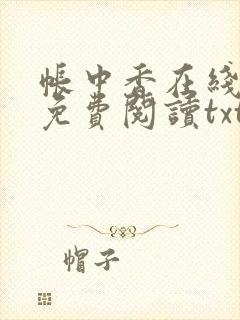 帳中香在綫
免費閱讀txt
帽子